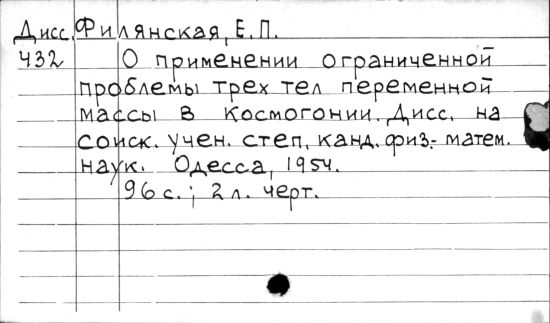 Дисс. Филянская, Е.П.
432 О применении ограниченной
проблемы трех тел переменной
массы в космогонии. Дисс. на
соиск. учен. степ. канд. физ.- матем.
наук. Одесса, 1954.
96 с.; 2 л. черт.